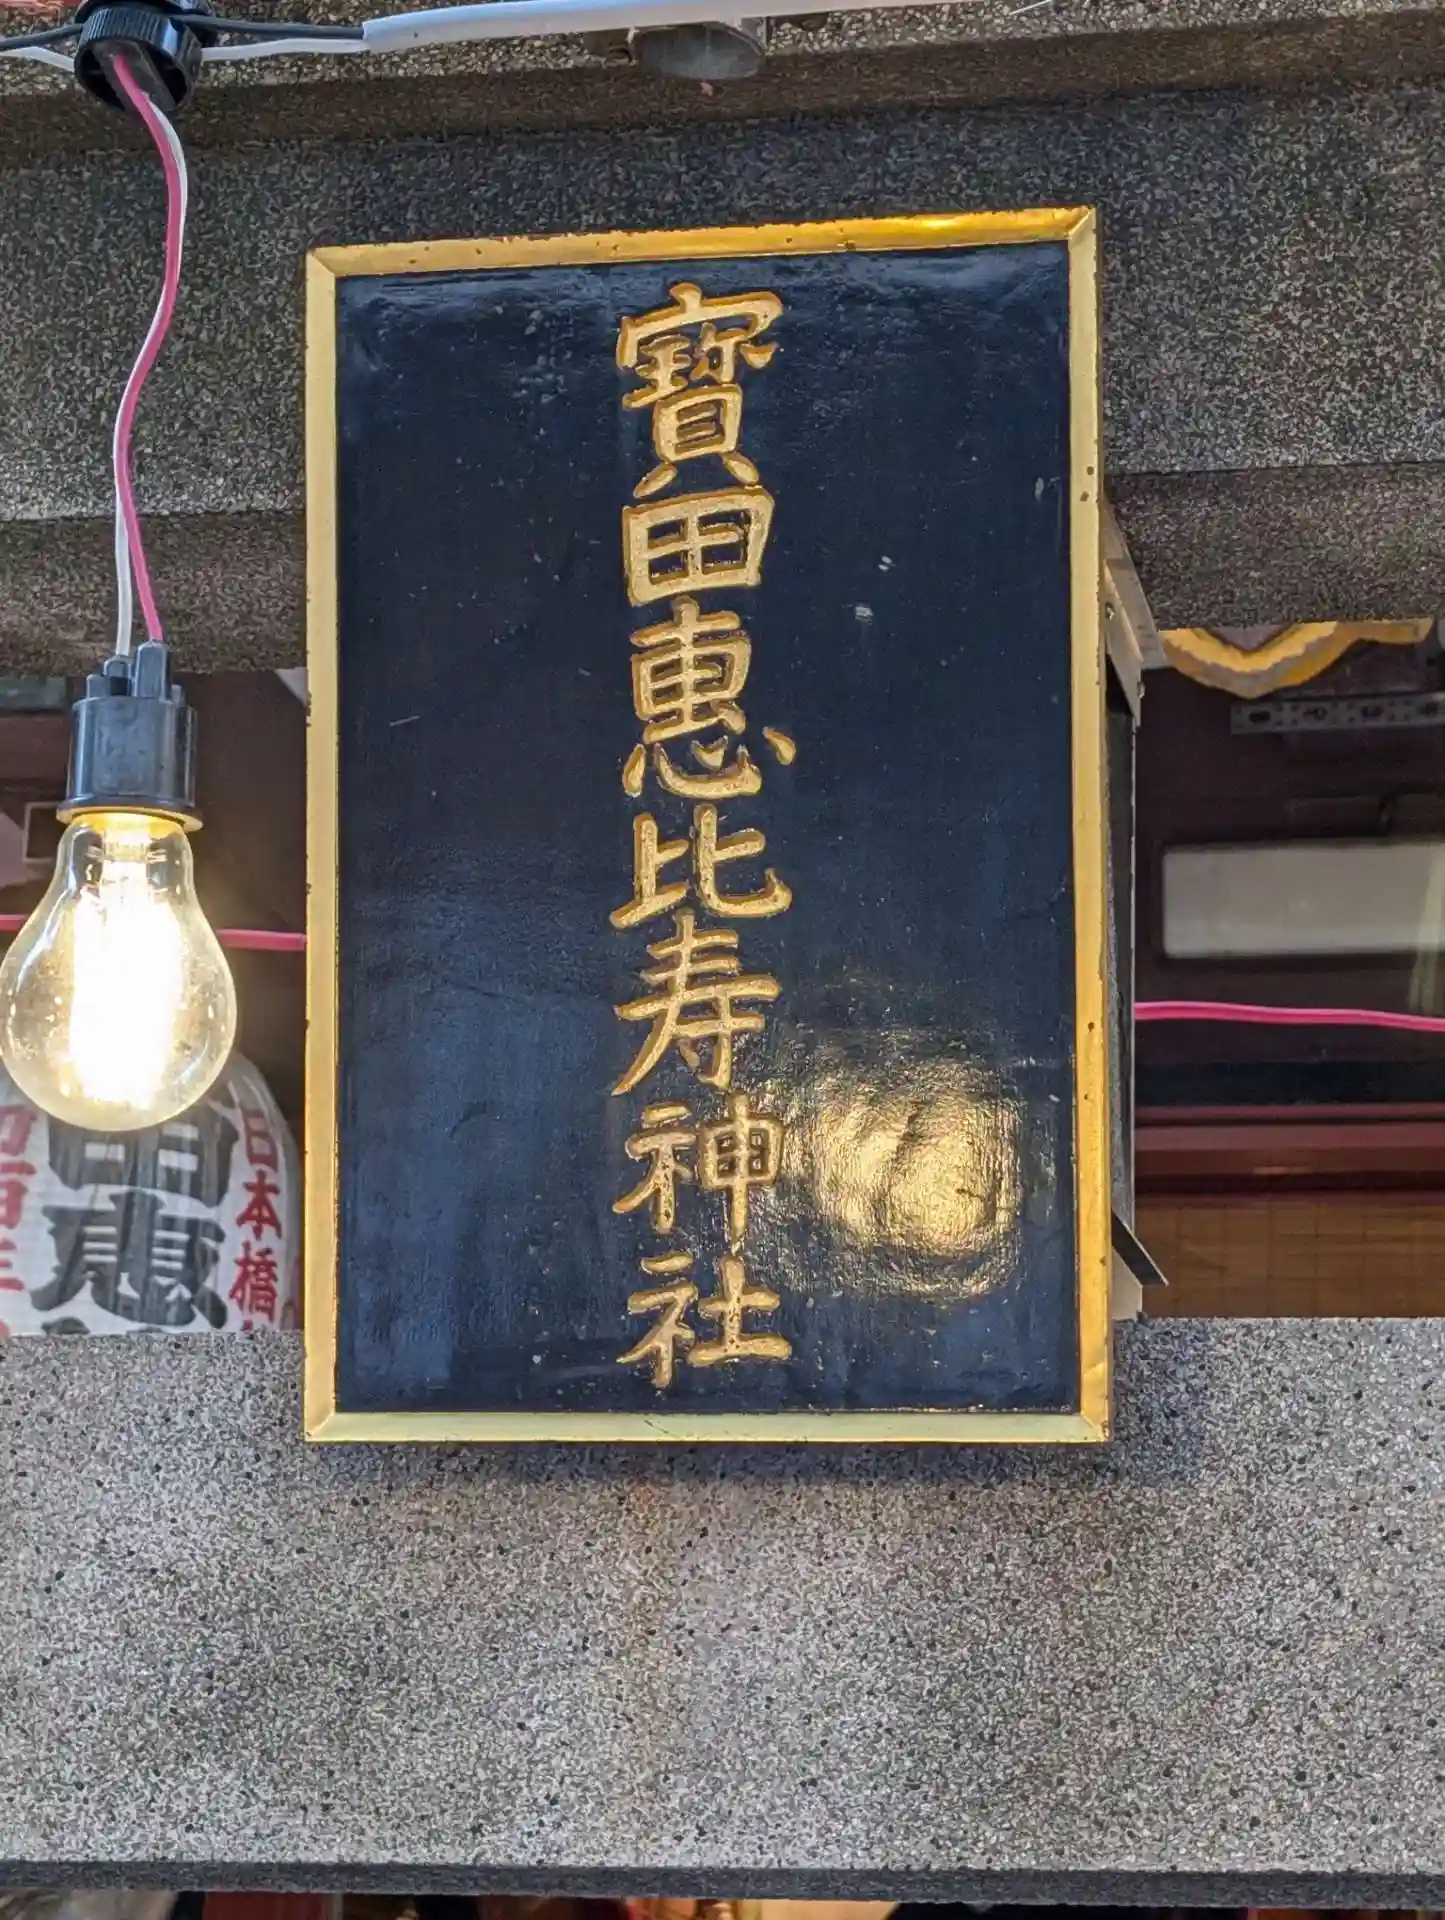 寶田恵比寿神社
日本橋
田恵